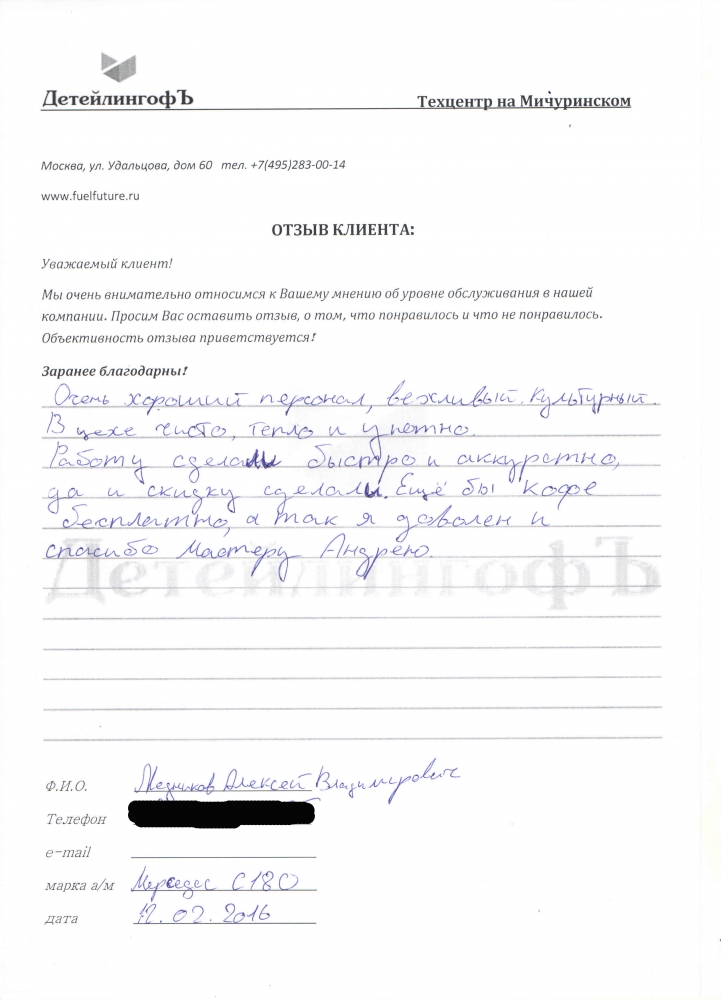 ДетейлингофЪ
Техцентр на Мичуринском
Москва, ул. Удальцова, дом 60 тел. +7(495)283-00-14
www.fuelfuture.ru
ОТЗЫВ КЛИЕНТА:
Уважаемый клиент!
Мы очень внимательно относимся к Вашему мнению об уровне обслуживания в нашей
компании. Просим Вас оставить отзыв, о том, что понравилось и что не понравилось.
Объективность отзыва приветствуется!
Заранее благодарны!
Очень хороший персонал, вежливый. Культурный.
В цехе чисто, тепло и уютно.
Работу сделали быстро и аккуратно,
да и скидку сделали. Ещё бы кофе
бесплатно, а так я доволен и
спасибо Мастеру Андрею.
ДетейлингофЪ
Ф.И.О. Медников Алексей Владимирович
Телефон
e-mail
марка а/м Мерседес C180
дата 12.02.2016